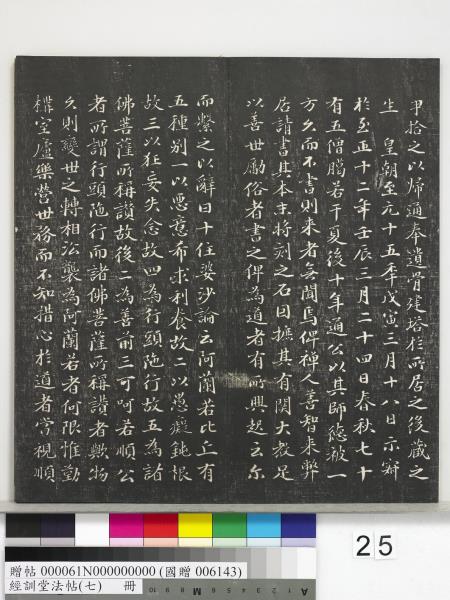 甲拾之以歸通奉遺骨建塔於所居之後蔵之
生皇朝至元十五年戊寅三月十八日示寂
於至正十二年壬辰三月二十四日春秋七十
有五僧臘若干夏後十年通公以其師德被一
方久而不書則来者無聞焉俾禅人善智来弊
居請書其本末将刻之石因摭其有関大教足
以善世勵俗者書之俾為道者有所興起云尔
而繫之以辭曰十住婆沙論云阿蘭若比丘有
五種別一以悪意希求利養故二以愚癡鈍根
故三以狂妄失念故四為行頭陁行故五為諸
佛菩薩所稱讃故後二為善前三可呵若順公
者所謂行頭陁行而諸佛菩薩所稱讃者歟物
久則弊世之轉相沿襲為阿蘭若者何限惟勤
樓室廬樂營世務而不知措心於道者常視順
25
贈帖 000061N000000000 (國贈 006143)
經訓堂法帖(七) 冊